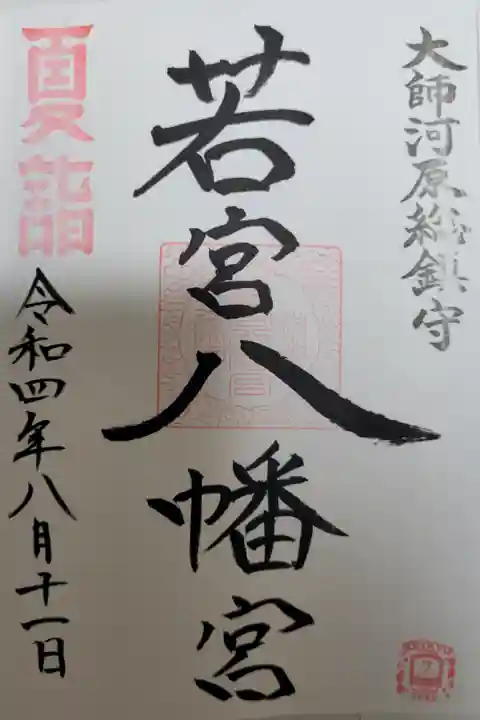 大師河原総鎮守
若宮八幡宮
夏詣
令和四年八月十一日